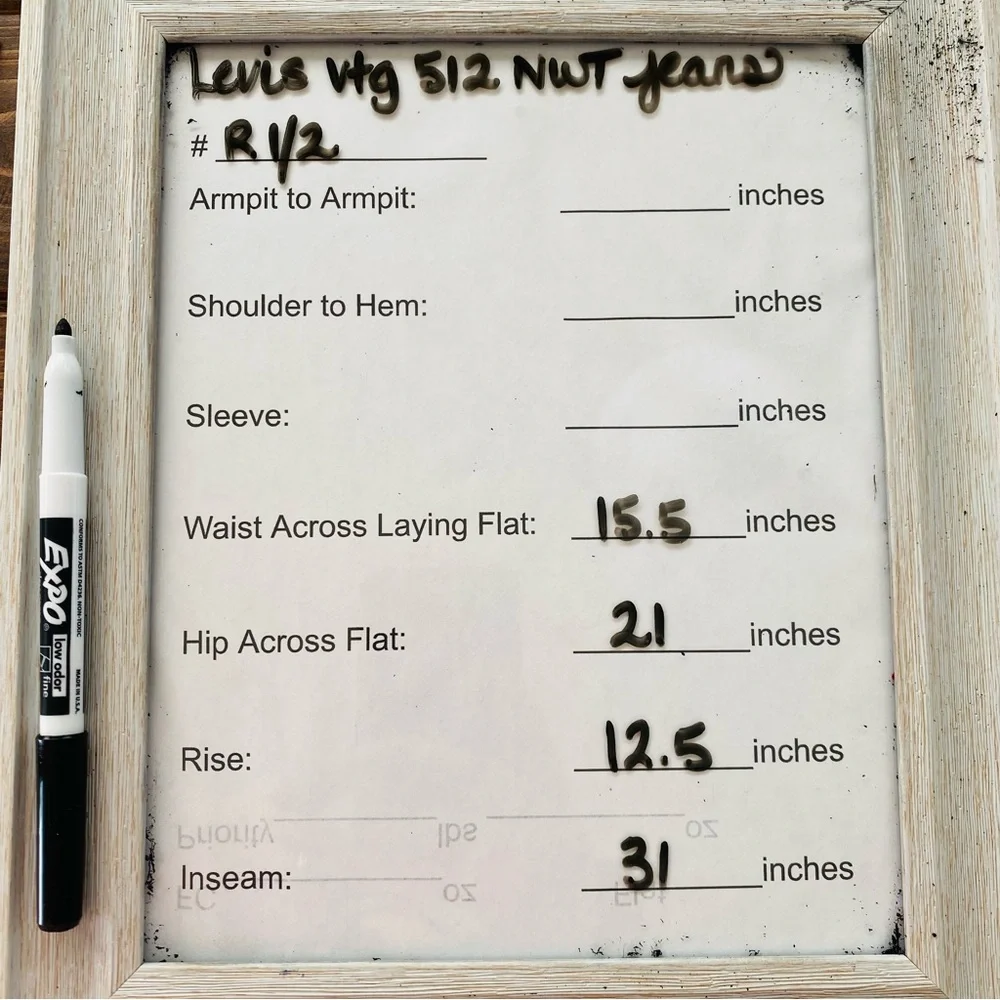 Levis vtg 512 NWT Jeans
# R 1/2
Armpit to Armpit: inches
Shoulder to Hem: inches
Sleeve: inches
Waist Across Laying Flat: 15.5 inches
Hip Across Flat: 21 inches
Rise: 12.5 inches
Priority lbs oz
Inseam: 31 inches
FC oz Flat
EXPO low odor fine
CONFORMS TO ASTM D4236. NON-TOXIC MADE IN U.S.A.